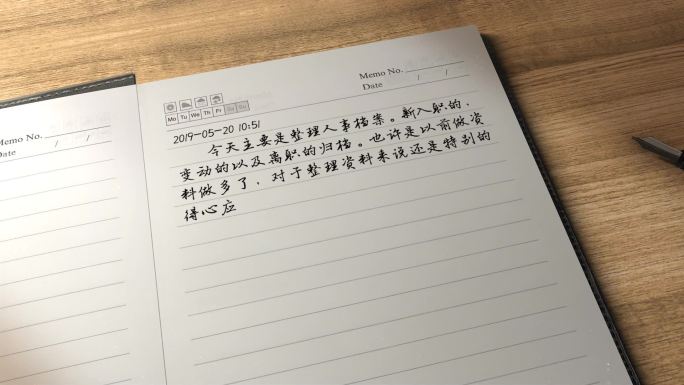 Memo No.
Date / /
Memo No.
Date / /
Mo Tu We Th Fr Sa Su
2019-05-20 10:51
今天主要是整理人事档案。新入职的,
变动的以及离职的归档。也许是以前做资
料做多了,对于整理资料来说还是特别的
得心应